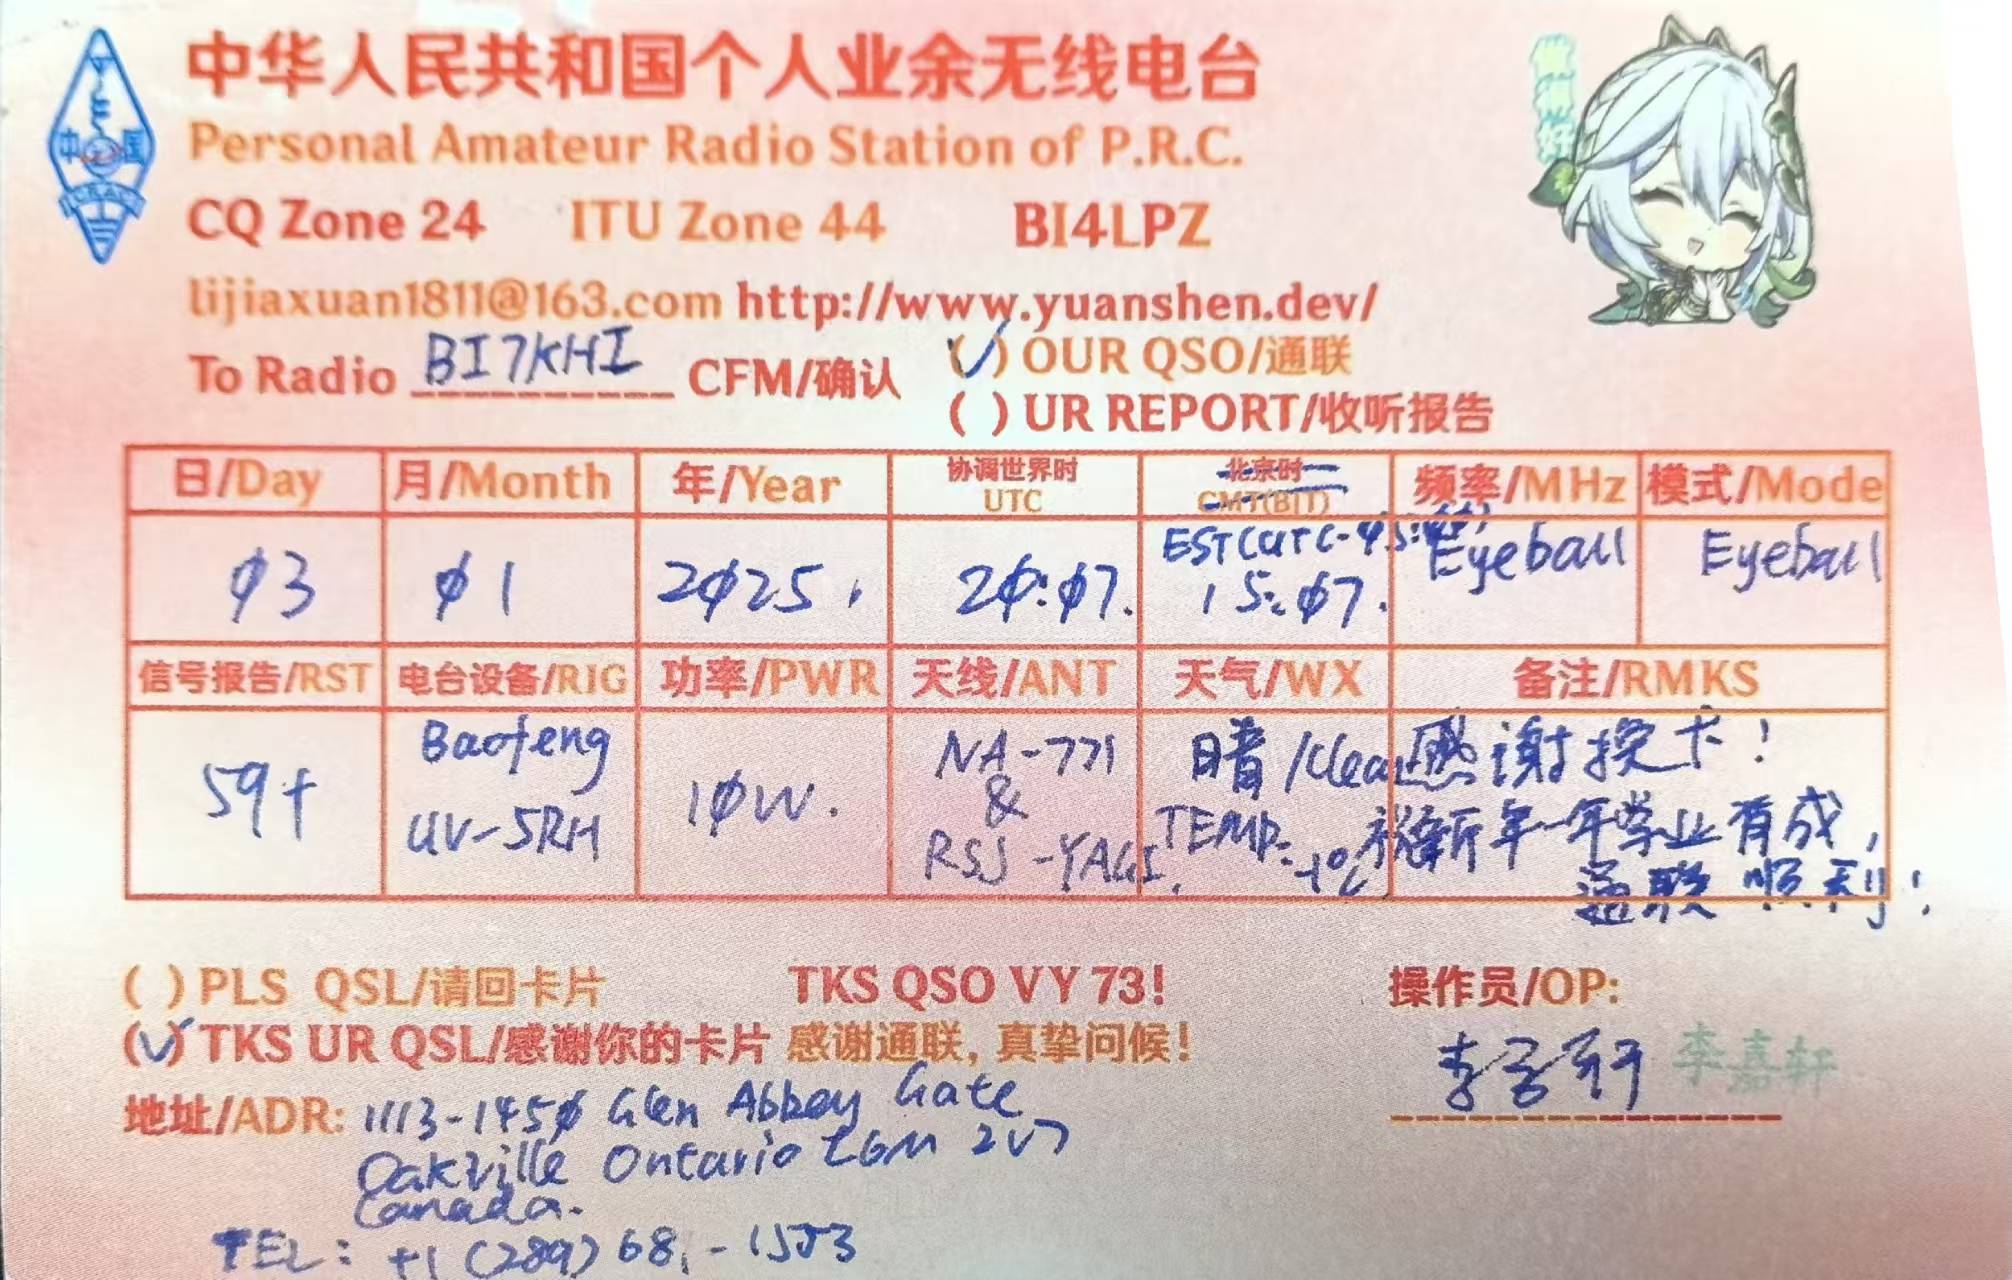 中华人民共和国个人业余无线电台
Personal Amateur Radio Station of P.R.C.
CQ Zone 24 ITU Zone 44 BI4LPZ
lijiaxuan1811@163.com http://www.yuanshen.dev/
To Radio BI7KHI CFM/确认
(✓) OUR QSO/通联
( ) UR REPORT/收听报告
中国
CRAC
日/Day 月/Month 年/Year 协调世界时 UTC 北京时 CMT(BJT) 频率/MHz 模式/Mode
Ø3 Ø1 2Ø25. 2Ø:Ø7. EST(UTC- 15:Ø7. Eyeball Eyeball
信号报告/RST 电台设备/RIG 功率/PWR 天线/ANT 天气/WX 备注/RMKS
59+ Baofeng UV-5RH 1ØW. NA-771 & RSJ-YAGI. 晴/Clear TEMP: -1℃ 感谢换卡!
祝新年一年学业有成,
通联顺利!
( ) PLS QSL/请回卡片 TKS QSO VY 73! 操作员/OP:
(✓) TKS UR QSL/感谢你的卡片 感谢通联, 真挚问候!
李嘉轩 李嘉轩
地址/ADR: 1113-145Ø Glen Abbey Gate
Oakville Ontario L6M 2V7
Canada.
TEL: +1 (289) 68 -1553